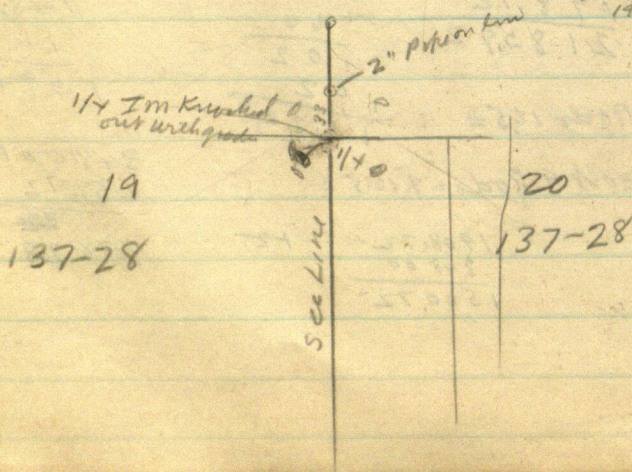 2" Pipe on line
33
1/4 Im Knocked
out with grade
1/4
19
20
137-28
137-28
Sec Line